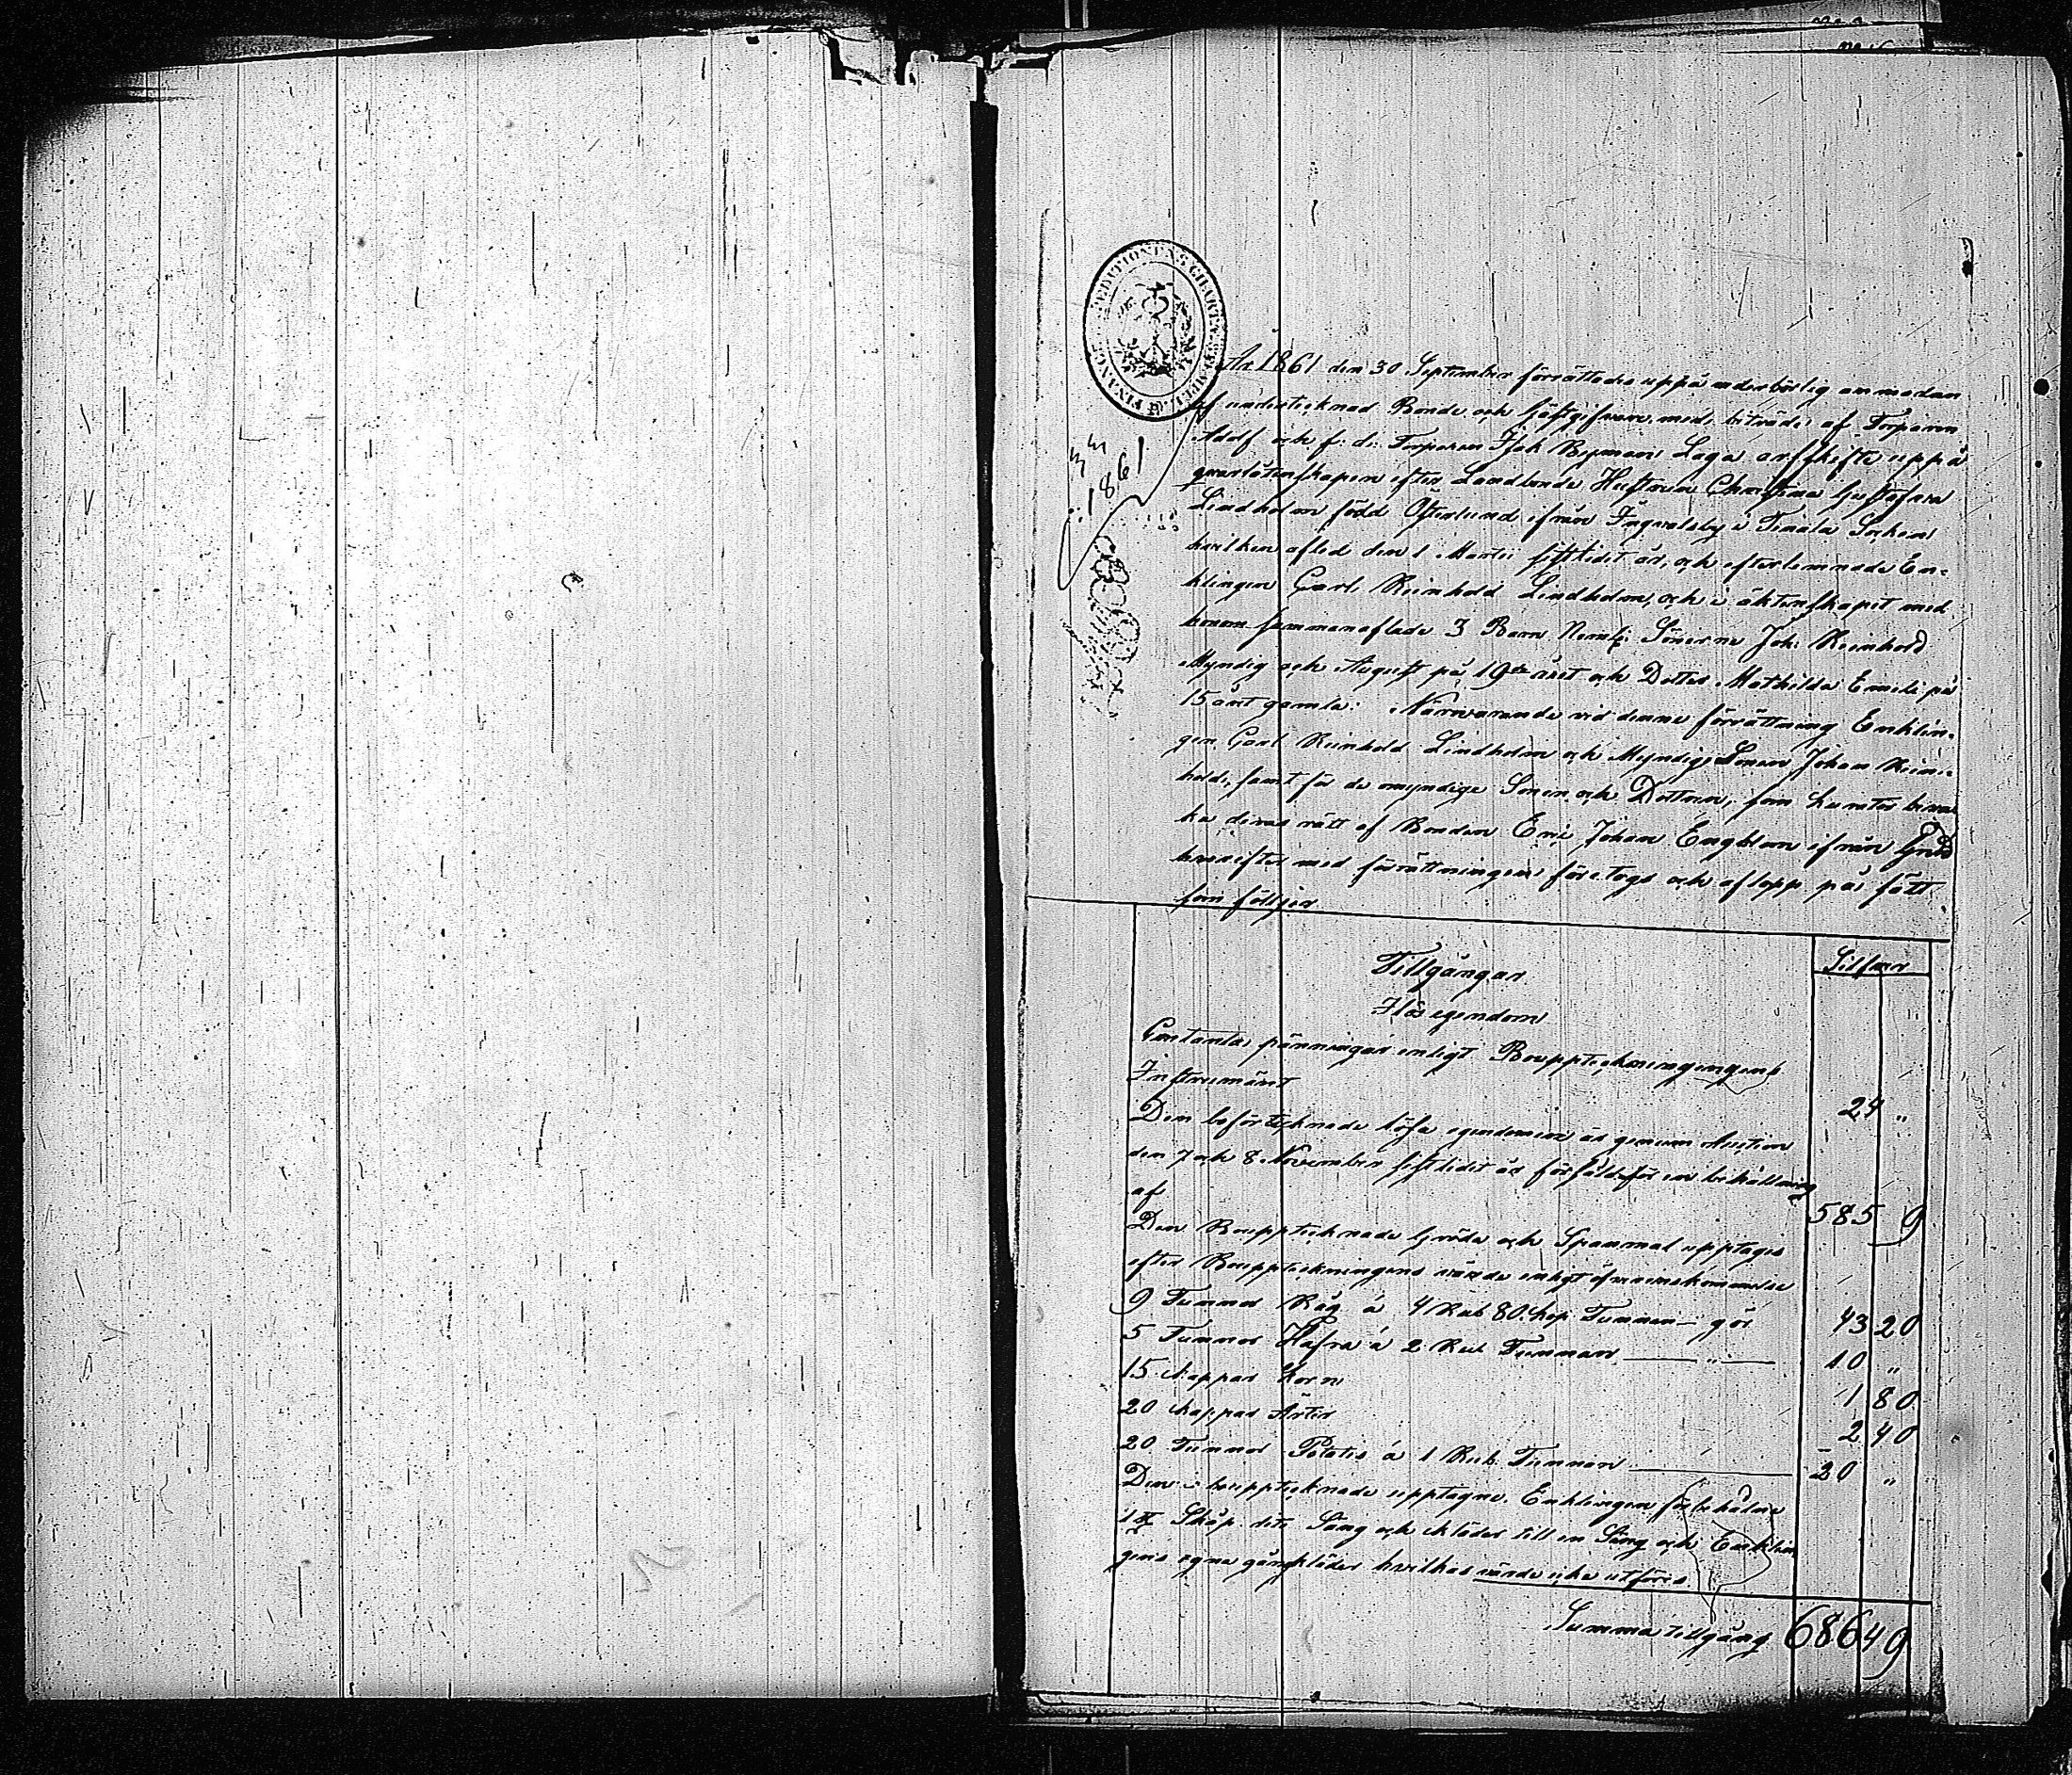 FINANCE EXPEDITIONENS CHARTÆ SIGILL.
År 1861 den 30 September förrättades uppå vederbörlig anmodan
af undertecknad Bonde och Gästgifvare med biträde af Torparen
Adolf och f: d: Torparen Isak Nyman Laga arfskifte uppå
qvarlåtenskapen efter Landbonde Hustrun Christina Gustafva
Lindholm född Österlund ifrån Ingvalsby i Tenala Socken
hvilken afled den 1 Martii sistlidit år, och efterlemnade En-
klingen Carl Reinhold Lindholm, och i äktenskapet med
honom sammanaflade 3 Barn Neml: Sönerne Joh: Reinhold
Myndig och August på 19de året och Dotter Mathilda Emeli på
15 året gamla: Närvarande vid denne förrättning Enklin-
gen Carl Reinhold Lindholm och Myndige Sonen Johan Rein-
hold, samt för de omyndige Sonen och Dottren, som Kurator bevа-
ka deras rätt af Bonden Eric Johan Engblom ifrån
hvarefter med förrättningen företogs och aflopp på sätt
som följer
Tillgångar
Silfver
I lös egendom
Contanta pänningar enligt Bouppteckningengens
Instrumänt 24 "
Den boförtecknade lösa egendomen är genom Auction
den 7 och 8 November sistlidit år försåld för en behållning
af 585 9
Den Bouppteknade Gröda och Spanmal upptages
efter Bouppteckningens värde enligt öfverenskommelse
9 Tunnor Råg á 4 Rub 80 Kop Tunnan — gör 43 20
5 Tunnor Hafra á 2 Rub Tunnan — " — 10 "
15 Kappar Korn 1 80
20 Kappar Ärter 2 40
20 Tunnor Potatis á 1 Rub. Tunnan — 20 "
Den i bouppteknade upptagne Enklingen förbehålne
1 st Skåp dito Säng och Kläder till en Säng och Enklin
gens egna gångkläder hvilkas värde icke utföres
Summa tillgång 686 49
1861